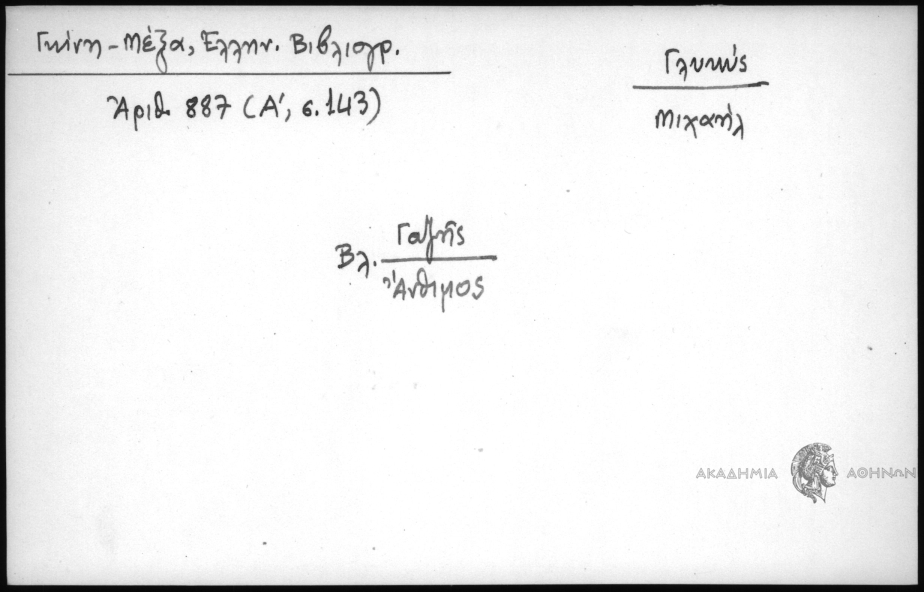 Γκίνη - Μέξα, Ἑλλην. Βιβλιογρ.
Ἀριθ. 887 (Α', σ. 143)
Γλυκύς
Μιχαήλ
Βλ. Γαζῆς
Ἄνθιμος
ΑΚΑΔΗΜΙΑ ΑΘΗΝΩΝ